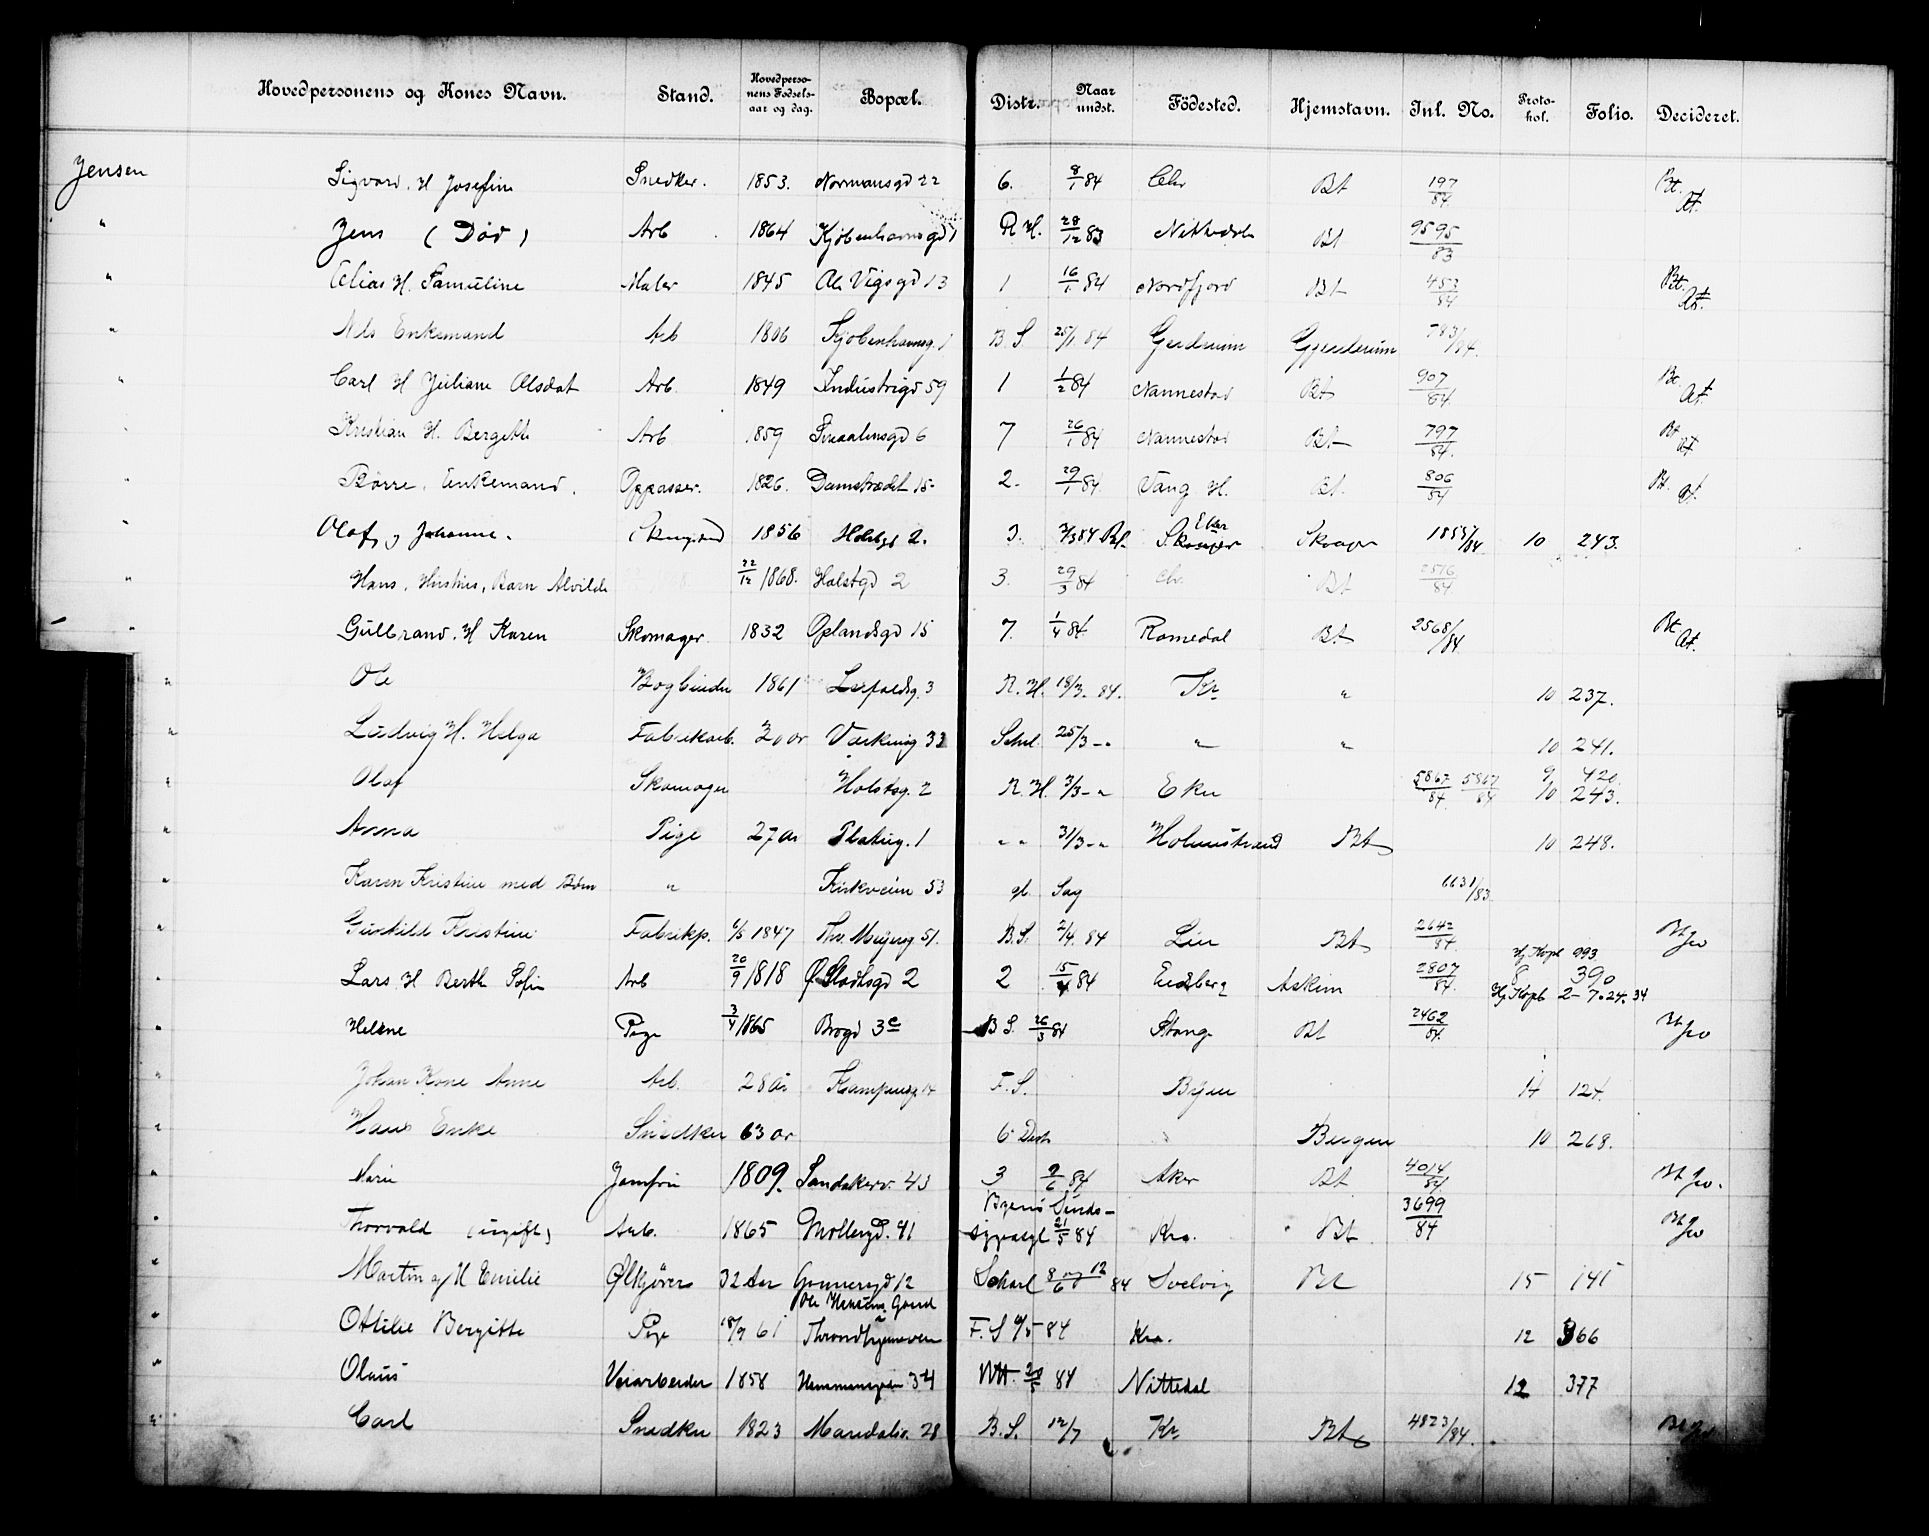 Hovedpersonens og Kones Navn. Stand. Hovedpersonens Fødselsaar og dag. Bopæl. Distr. Naar undst. Födested. Hjemstavn. Inl. No. Protokol. Folio. Decideret.
Jensen Sigvard. H Josefine Snedker. 1853. Normansgd 22 6. 8/1 84 Chr Bt 197/84 Bt. At.
" Jens (Död) Arb 1864 Kjöbenhavnsgd 1 R H. 28/12 83 Nittedal Bt 9595/83
" Elias H. Pauline Maler 1845 Ole Vigsgd 13 1 16/1 84 Nordfjord Bt 453/84 Bt. At.
" Nils Enkemand Arb 1806 Kjöbenhavnsg. 1 B. S. 25/1 84 Gjerdrum Gjerderum 783/84.
" Carl H Juliane Olsdat Arb. 1849 Industrigd 59 1 1/2 84 Nannestad Bt 907/84 Bt. At.
" Kristian H. Bergitte Arb 1859 Smaalensgd 6 7 26/1 84 Nannestad Bt 797/84. Bt At
" Börre. Enkemand. Oppasser. 1826. Damstrædet 15 2. 29/1 84. Vang H. Bt. 806/84 Bt. At.
" Olaf, g Johanne. 1856 Holstgd 2. 3. 3/3 84 Bl. Eker Skoger Skoger 1855/84 10 243.
" Hans, Hustru, Barn Alvilde 22/12 1868. Holstgd 2 3. 29/3 84 Chr. Bt 2516/84
" Gulbrand. H Karen Skomager. 1832 Oplandsgd 15 7. 1/4 84. Romedal Bt 2568/84 Bt At.
" Ole Bogbinder 1861 Leirfaldsg. 3 R. H. 18/3. 84. Kr " 10 237.
" Ludvig H. Helga Fabrikarb. 30 or Verksieg 33 Schul. 25/3 - " " " 10 241.
" Olaf Skomager Holstsg. 2 R. H. 3/3 - " Eker 5867/84 5867/84 9 420. 10 243.
" Anna Pige 27 aar Plateug. 1 " " 31/3 - " Holmestrand Bt 10 248.
" Karen Kristine med Børn " Kirkveien 53 gl. Sag 6631/83.
" Gunhild Kristine Fabrikp. 6/5 1847 Thv. Meyersg 51. B. S. 2/4. 84 Lier Bt 2642/84. Bt Jvo
" Lars H Berthe Sofie Arb 20/9 1818 Ø. Slodtsgd 2 2 15/4 84 Eidsberg Askim 2807/84. Hj Kopb 993 8 390 Hj Kopb 2-7.24. 34
" Helene Pige 3/4 1865 Brogd 3c B S. 26/3 84 Stange Bt 2462/84. Bt Jvo
" Johan Kone Anne Arb. 28 Aar Kampensg. 14 F. S. Byen 14 124.
" Hans Enke Snedker 63 or 6 Dist " Bergen 10 268.
" Marie Jomfru 1809. Sandakerv. 43 3 2/6 84 Aker Bt 4014/84 Bt Jvo.
" Thorvald (ugift) Arb. 1865 Mollergd. 41 Byens Sindssygeasyl 21/5 84 Kra. Bt 3699/84 Bt Jvo
" Martin og H Emilie Ølkjörer 32 Aar Gunnersgd 12 Scharl 8 og 12/6 84 Svelvig Bt 15 141
" Ottilie Bergitte Pige 18/9 61 Ole Hansens Gaard Throndhjemsveien F. S 6/5 84 Kra. 12 366
" Olaus Veiarbeider 1858 Hammersgaden 34 29/5 84 Nittedal 12 377
" Carl Snedker 1823 Maridalsv. 28 B. S. 12/7 Kr Bt 4823/84. Bt Jvo